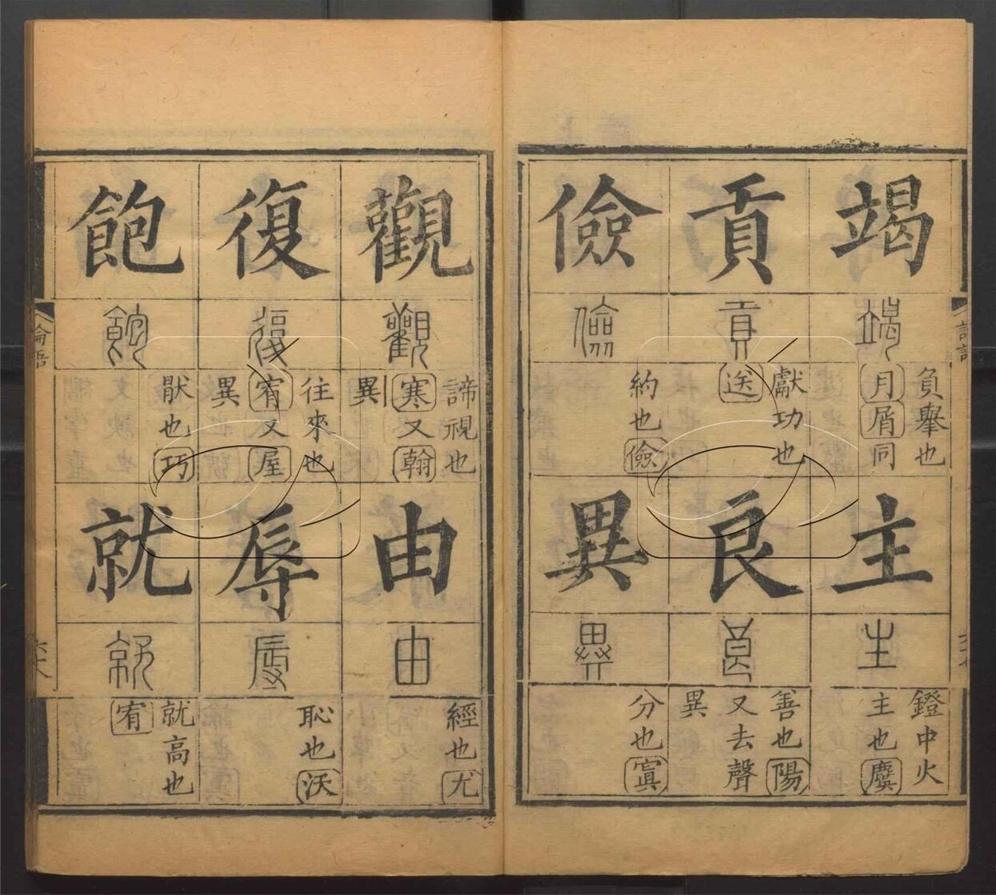 竭
竭
負舉也
月屑同
主
主
鐙中火
主也麌
貢
貢
獻功也
送
良
良
善也陽
又去聲
異
儉
儉
約也儉
異
異
分也寘
觀
觀
諦視也
寒又翰
異
由
由
經也尤
復
復
往來也
宥又屋
異
辱
辱
恥也沃
飽
飽
猒也巧
就
就
就高也
宥
論語